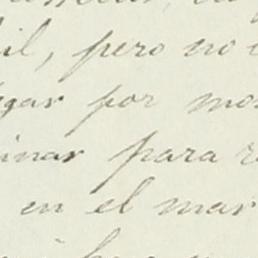 il, pero no
gar por
inar para
en el mar